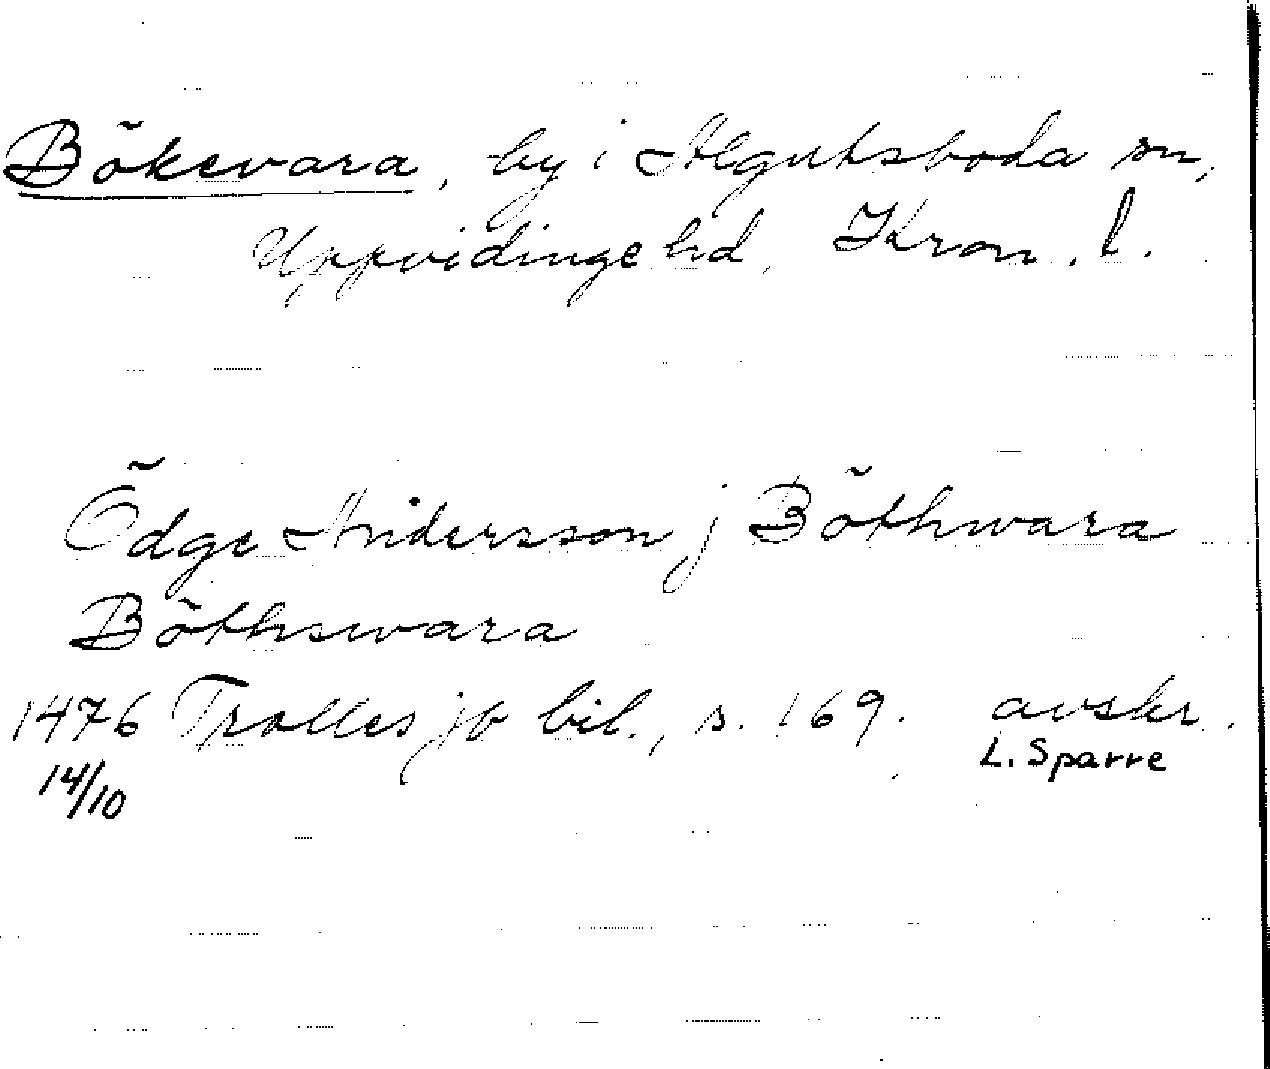 Bökevara, by i Algutsboda sn,
Uppvidinge hd, Kron. l.
Ödge Andersson j Böthwara
Böthswara
1476 Trolles jb bil., s. 169. avskr.
14/10 L. Sparre